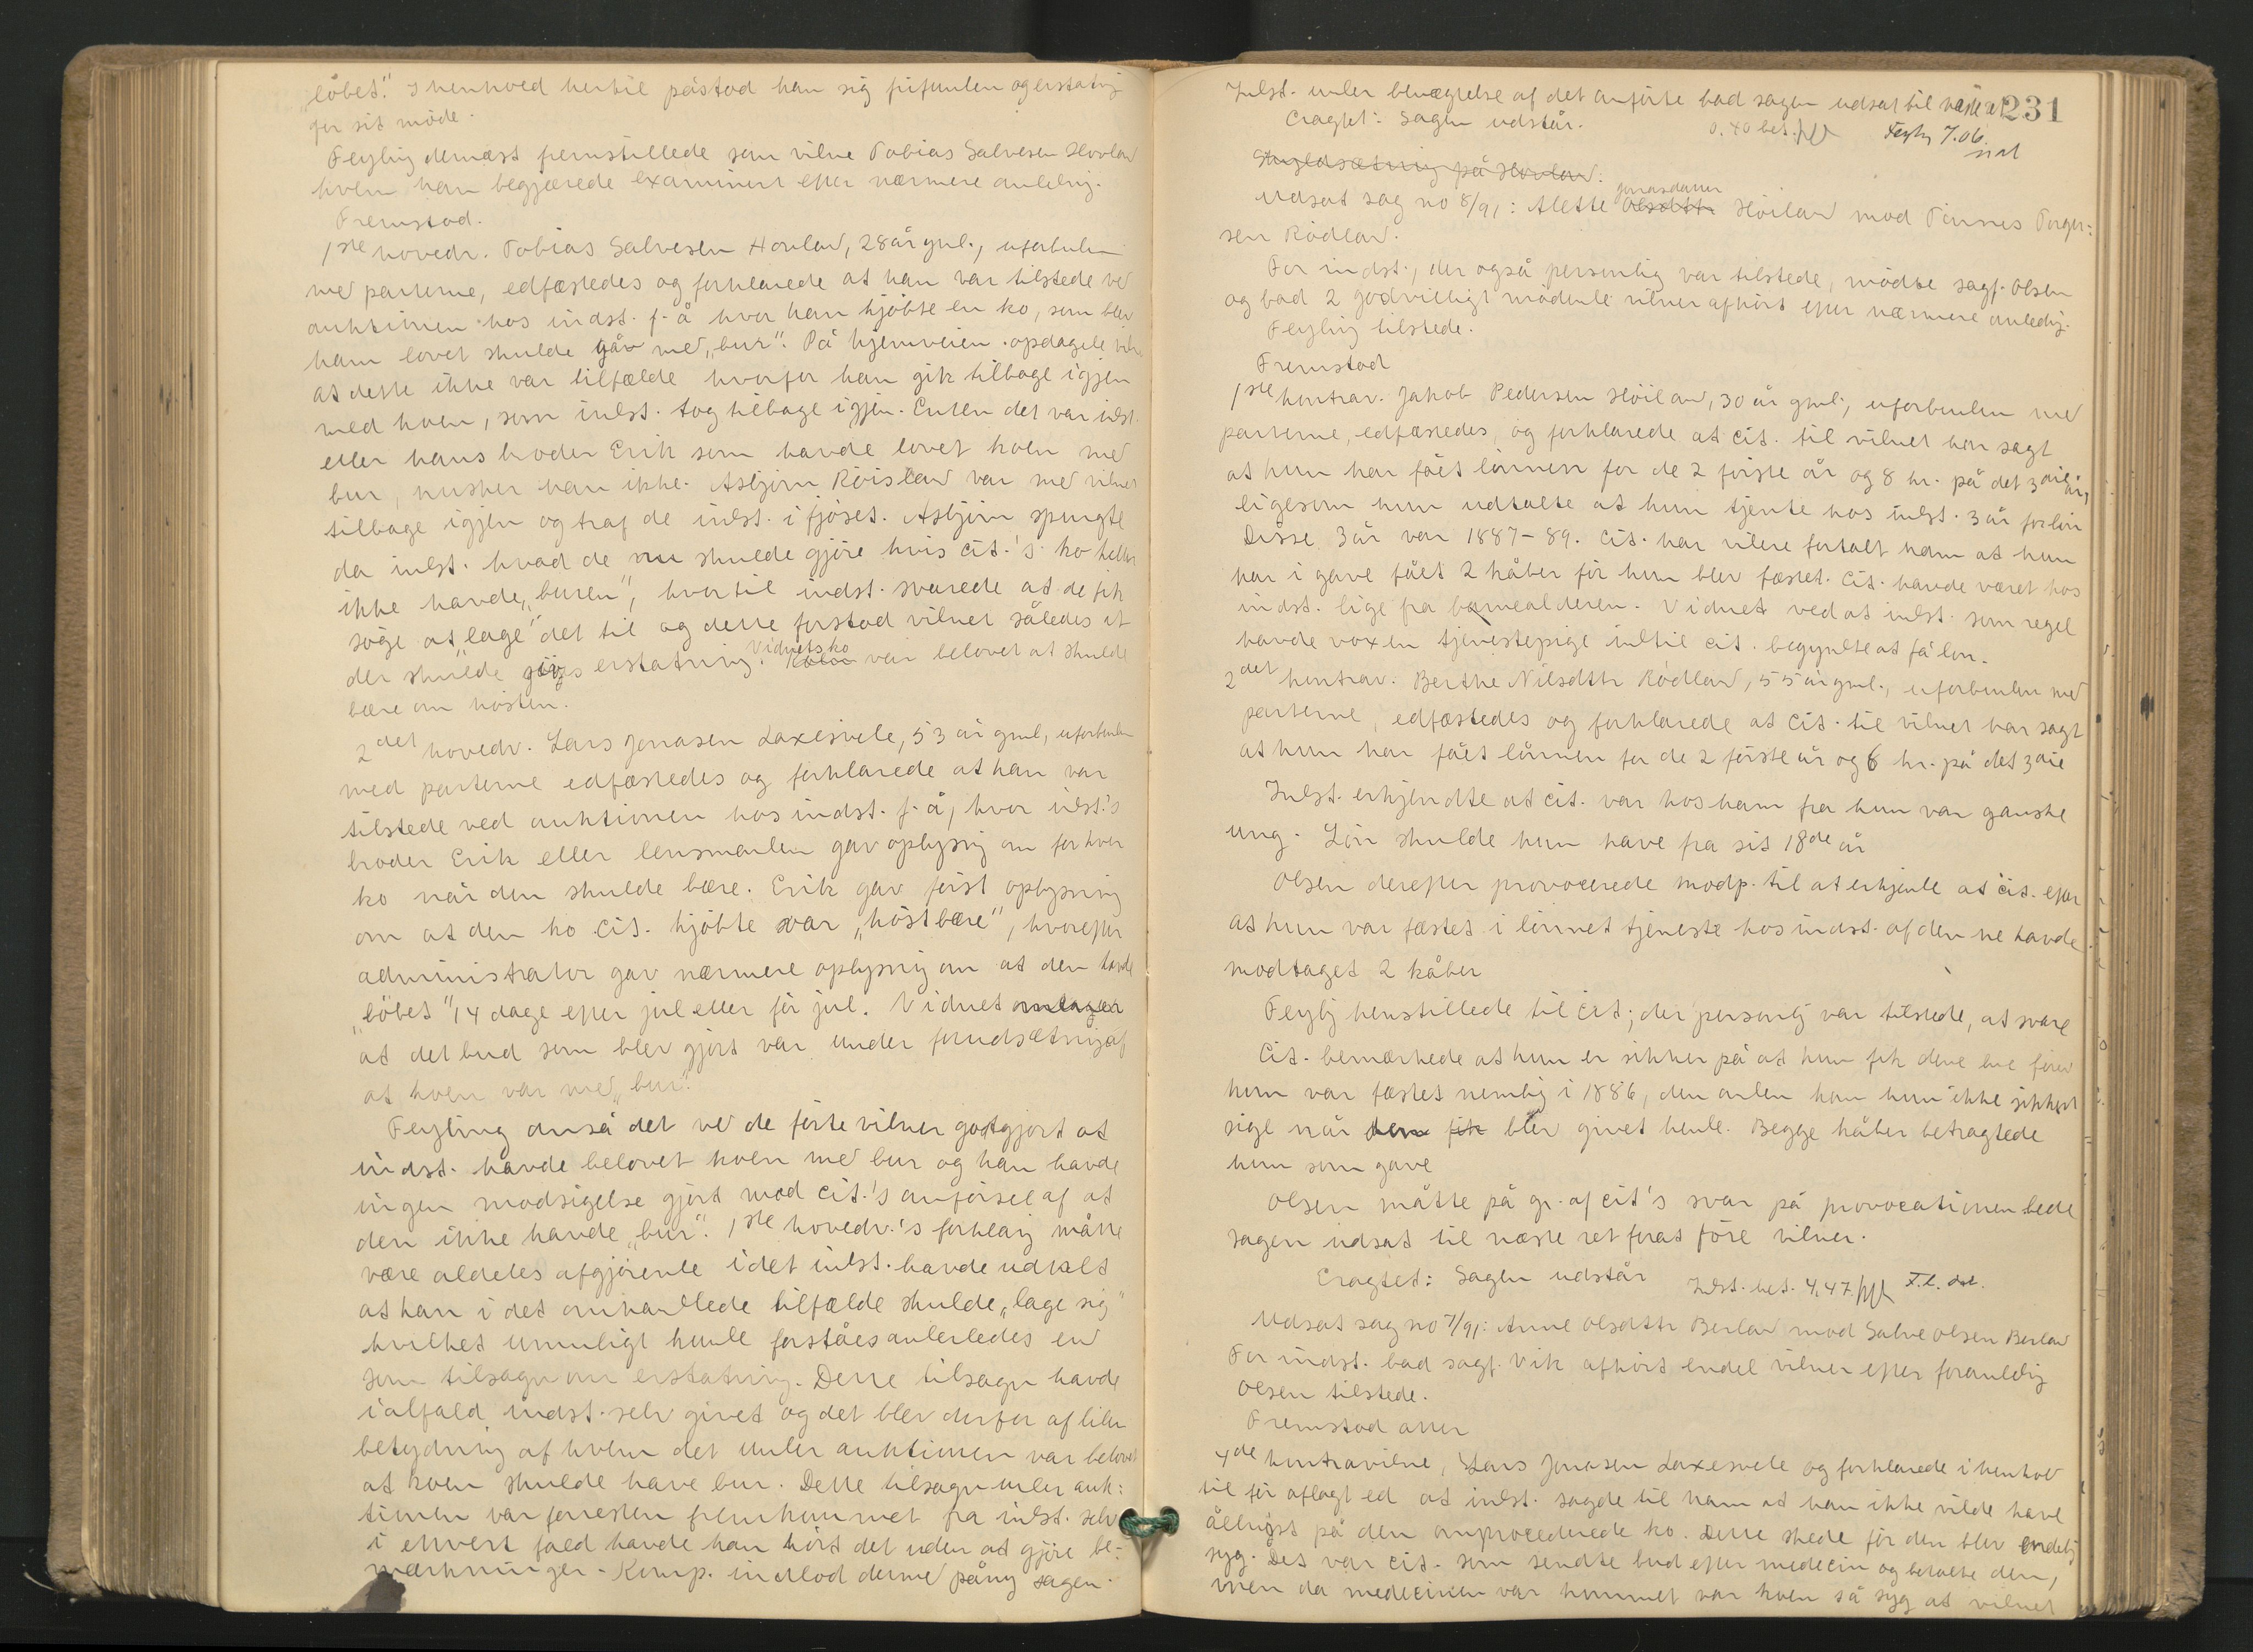 löbet." I henhold hertil påstod han sig frifunden og erstatnig
for sit möde.
Feyling dernæst fremstillede som vidne Tobias Salvesen Hovland
hvem han begjærede examineret efter nærmere anledng.
Fremstod.
1ste hovedv. Tobias Salvesen Hovland, 28 år gml., uforbunden
med parterne, edfæstedes og forklarede at han var tilstede ved
auktionen hos indst. f. å hvor han kjöbte en ko, som blev
ham lovet skulde gå med "bur". På hjemveien opdagede vidn.
at dette ikke var tilfælde hvorfor han gik tilbage igjen
med koen, som indst. tog tilbage igjen. Enten det var indst.
eller hans broder Erik som havde lovet koen med
bur, husker han ikke. Asbjörn Röisland var med vidnet
tilbage igjen og traf de indst. i fjöset. Asbjörn spurgte
da indst. hvad de nu skulde gjöre hvis cit.'s ko heller
ikke havde "buren", hvortil indst. svarede at de fik
söge at "lage" det til og dette forstod vidnet således at
der skulde gives erstatning. Vidnets ko var belovet at skulde
bære om hösten.
2det hovedv. Lars Jonasen Laxesvele, 53 år gml, uforbunden
med parterne edfæstedes og forklarede at han var
tilstede ved auktionen hos indst. f. å, hvor indst.'s
broder Erik eller lensmanden gav oplysnig om for hver
ko når den skulde bære. Erik gav först oplysning
om at den ko cit. kjöbte var "höstbære", hvorefter
administrator gav nærmere oplysnig om at den havde
"löbet" 14 dage efter jul eller för jul. Vidnet antager
at det bud som blev gjort var under forudsætning af
at koen var med "bur".
Feyling anså det ved de förte vidner godtgjort at
indst. havde belovet koen med bur og han havde
ingen modsigelse gjort mod cit.'s anförsel af at
den ikke havde "bur". 1ste hovedv.'s forklarig måtte
være aldeles afgjörende idet indst. havde udtalt
at han i det omhandlede tilfælde skulde "lage sig"
hvilket umuligt kunde forståes anderledes end
som tilsagn om erstatning. Dette tilsagn havde
ialfald indst. selv givet og det blev derfor af liden
betydning af hvem det under auktionen var belovet
at koen skulde have bur. Dette tilsagn under auk:
tionen var forresten fremkommet fra indst. selv
i ethvert fald havde han hört det uden at gjöre be:
mærkninger. Komp. indlod dermed påny sagen.
231
Indst. under benægtelse af det anförte bad sagen udsat til næste ret
Eragtet: Sagen udstår. 0.40 bet. Feylg 7.06
Saugledsætning på Hovland.
Udsat sag no 8/91: Alette Olsdttr Jonasdatter Höiland mod Tönnes Torger:
sen Rödland.
For indst., der også personlig var tilstede, mödte sagf. Olsen
og bad 2 godvilligt mödende vidner afhört efter nærmere anledng.
Feyling tilstede.
Fremstod
1ste kontrav. Jakob Pedersen Höiland, 30 år gml., uforbunden med
parterne, edfæstedes, og forklarede at cit. til vidnet har sagt
at hun har fået lönnen for de 2 förste år og 8 kr. på det 3die år,
ligesom hun udtalte at hun tjente hos indst. 3 år for lön
Disse 3 år var 1887-89. Cit. har videre fortalt ham at hun
har i gave fået 2 kåber för hun blev fæstet. Cit. havde været hos
indst. lige fra barnealderen. Vidnet ved at indst. som regel
havde voxen tjenestepige indtil cit. begyndte at få lön.
2det kontrav. Berthe Nilsdttr Rödland, 55 år gml., uforbunden med
parterne, edfæstedes og forklarede at cit. til vidnet har sagt
at hun har fået lönnen for de 2 förste år og 6 kr. på det 3die
Indst. erkjendte at cit. var hos ham fra hun var ganske
ung. Lön skulde hun have fra sit 18de år
Olsen derefter provocerede modp. til at erkjende at cit. efter
at hun var fæstet i lönnet tjeneste hos indst. af denne havde
modtaget 2 kåber
Feylig henstillede til cit., der personlig var tilstede, at svare
Cit. bemærkede at hun er sikker på at hun fik den ene förend
hun var fæstet nemlig i 1886, den anden kan hun ikke sikkert
sige når den fik blev givet hende. Begge kåber betragtede
hun som gave
Olsen måtte på gr. af cit's svar på provocationen bede
sagen udsat til næste ret forat före vidner.
Eragtet: Sagen udstår Indst. bet. 4,47
Udsat sag no 7/91: Anne Olsdttr Berland mod Salve Olsen Berland
For indst. bad sagf. Vik afhört endel vidner efter foranledig
Olsen tilstede.
Fremstod atter
4de kontravidne, Lars Jonasen Laxesvele og forklarede i henhold
til för aflagt ed at indst. sagde til ham at han ikke vilde have
på den omprocederede ko. Dette skede för den blev endelig
syg. Det var cit. som sendte bud efter medecin og betalte den,
men da medecinen var kommet var koen så syg at vidnet